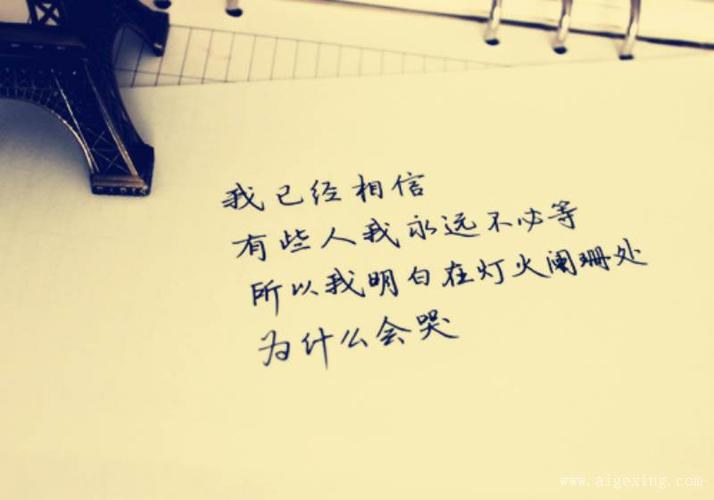 我已经相信
有些人我永远不必等
所以我明白在灯火阑珊处
为什么会哭
www.aigexing.com